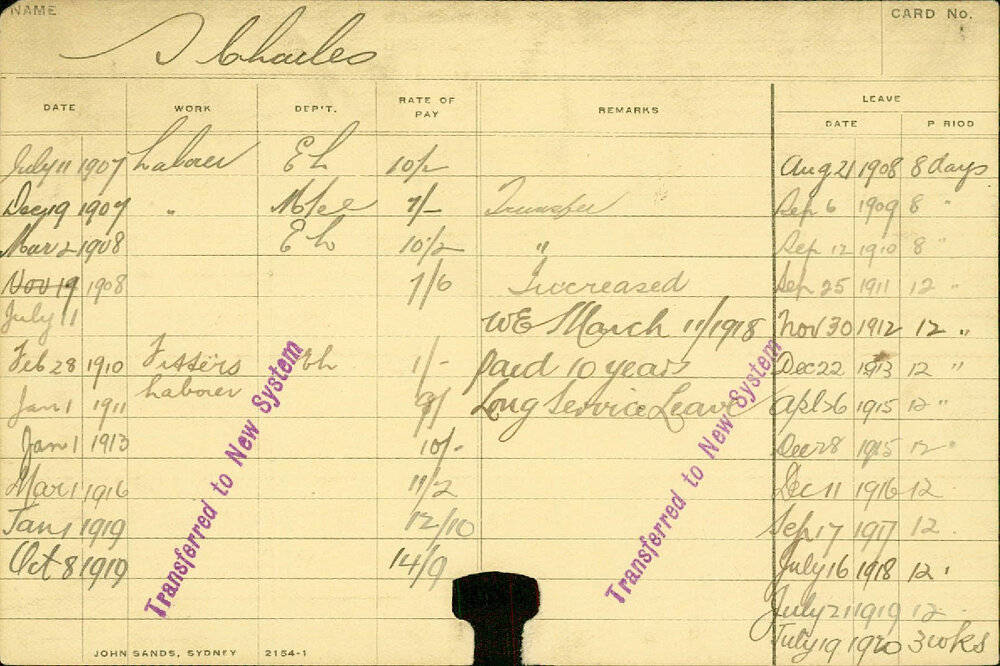 NAME
CARD No.
J Charles
DATE WORK DEP'T. RATE OF PAY REMARKS LEAVE
DATE P RIOD
July 11 1907 Laborer 10/2 Aug 21 1908 8 days
Dec 19 1907 " 7/- Transfer Sep 6 1909 8 "
Mar 2 1908 10/2 " Sep 12 1910 8 "
Nov 19 1908 7/6 Increased Sep 25 1911 12 "
July 11 WE March 11/1918 Nov 30 1912 12 "
Feb 28 1910 Fitters 1/- Paid 10 years Dec 22 1913 12 "
Laborer
Jan 1 1911 9/ Long Service Leave Apl 26 1915 12 "
Jan 1 1913 10/- Dec 28 1915 12 "
Mar 1 1916 11/2 Dec 11 1916 12
Jan 1 1919 12/10 Sep 17 1917 12 "
Oct 8 1919 14/9 July 16 1918 12 "
July 21 1919 12
July 19 1920 3 wks
Transferred to New System
Transferred to New System
JOHN SANDS, SYDNEY 2154-1